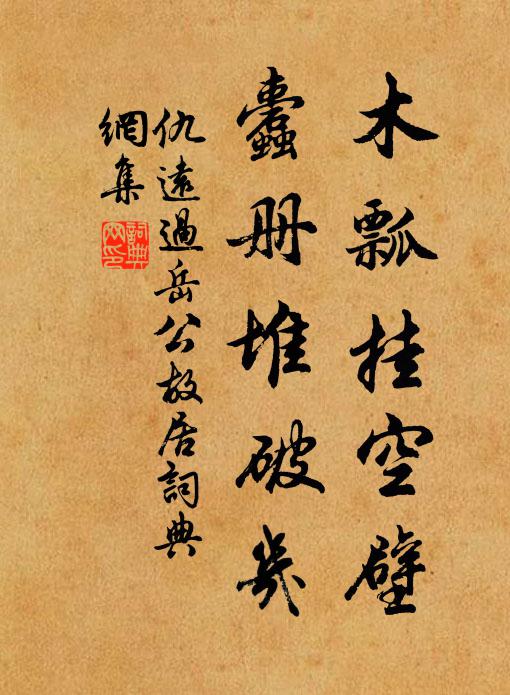 木瓢挂空壁
蠹册堆破几
仇遠過岳公故居詞典
網集
詞典
網印